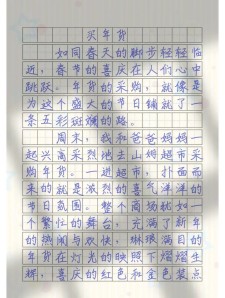 买年货
如同春天的脚步轻轻临
近，春节的喜庆在人们心中
跳跃。年货的采购，就像是
为这个盛大的节日铺就了一
条五彩斑斓的路。
周末，我和爸爸妈妈一
起兴高采烈地去山姆超市采
购年货。一进超市，扑面而
来的就是浓烈的喜气洋洋的
节日氛围。整个商场就如一
个繁忙的舞台，充满了新年
的热闹与欢快，琳琅满目的
年货在灯光的映照下熠熠生
辉，喜庆的红色和金色装点